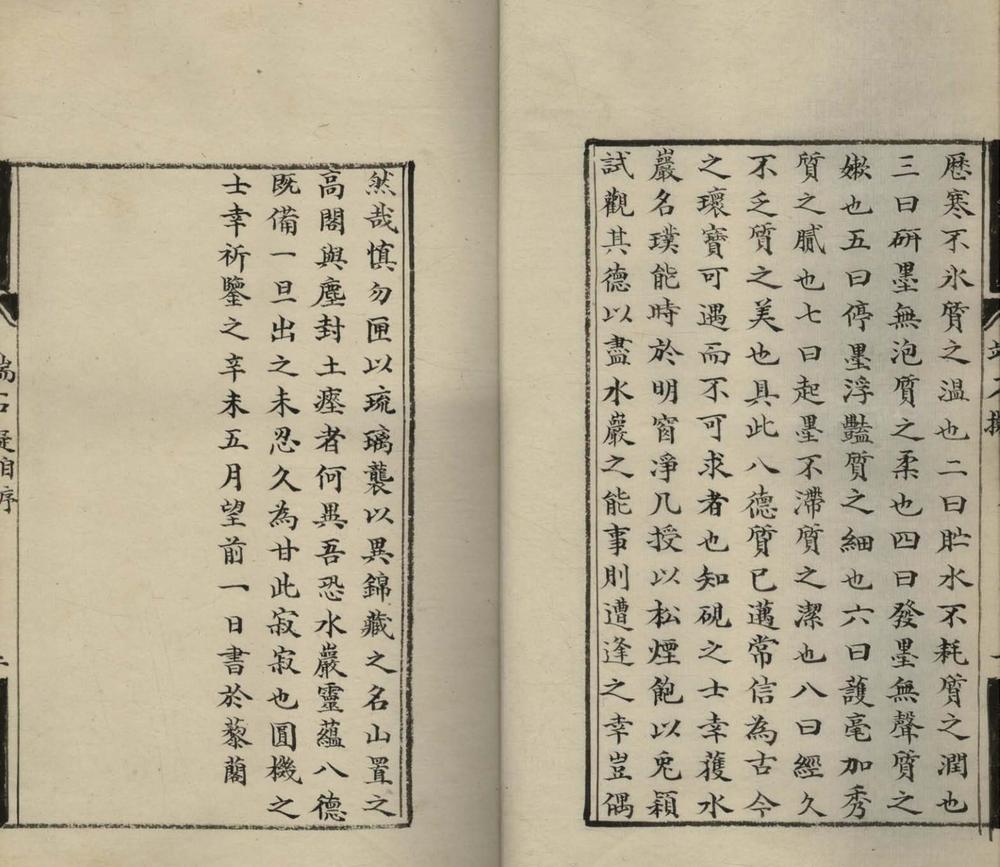 歷寒不氷質之温也二曰貯水不耗質之潤也
三曰研墨無泡質之柔也四曰發墨無聲質之
嫰也五曰停墨浮豔質之細也六曰護毫加秀
質之膩也七曰起墨不滯質之潔也八曰經久
不乏質之美也具此八德質已邁常信為古今
之瓌寶可遇而不可求者也知硯之士幸獲水
巖名璞能時於明窗淨几授以松煙飽以兎穎
試觀其德以盡水巖之能事則遭逢之幸豈偶
然哉慎勿匣以琉璃襲以異錦藏之名山置之
高閣與塵封土瘞者何異吾恐水巖靈蘊八德
既備一旦出之未忍久為甘此寂寂也圓機之
士幸祈鑒之辛未五月望前一日書於藜蘭
端石擬自序